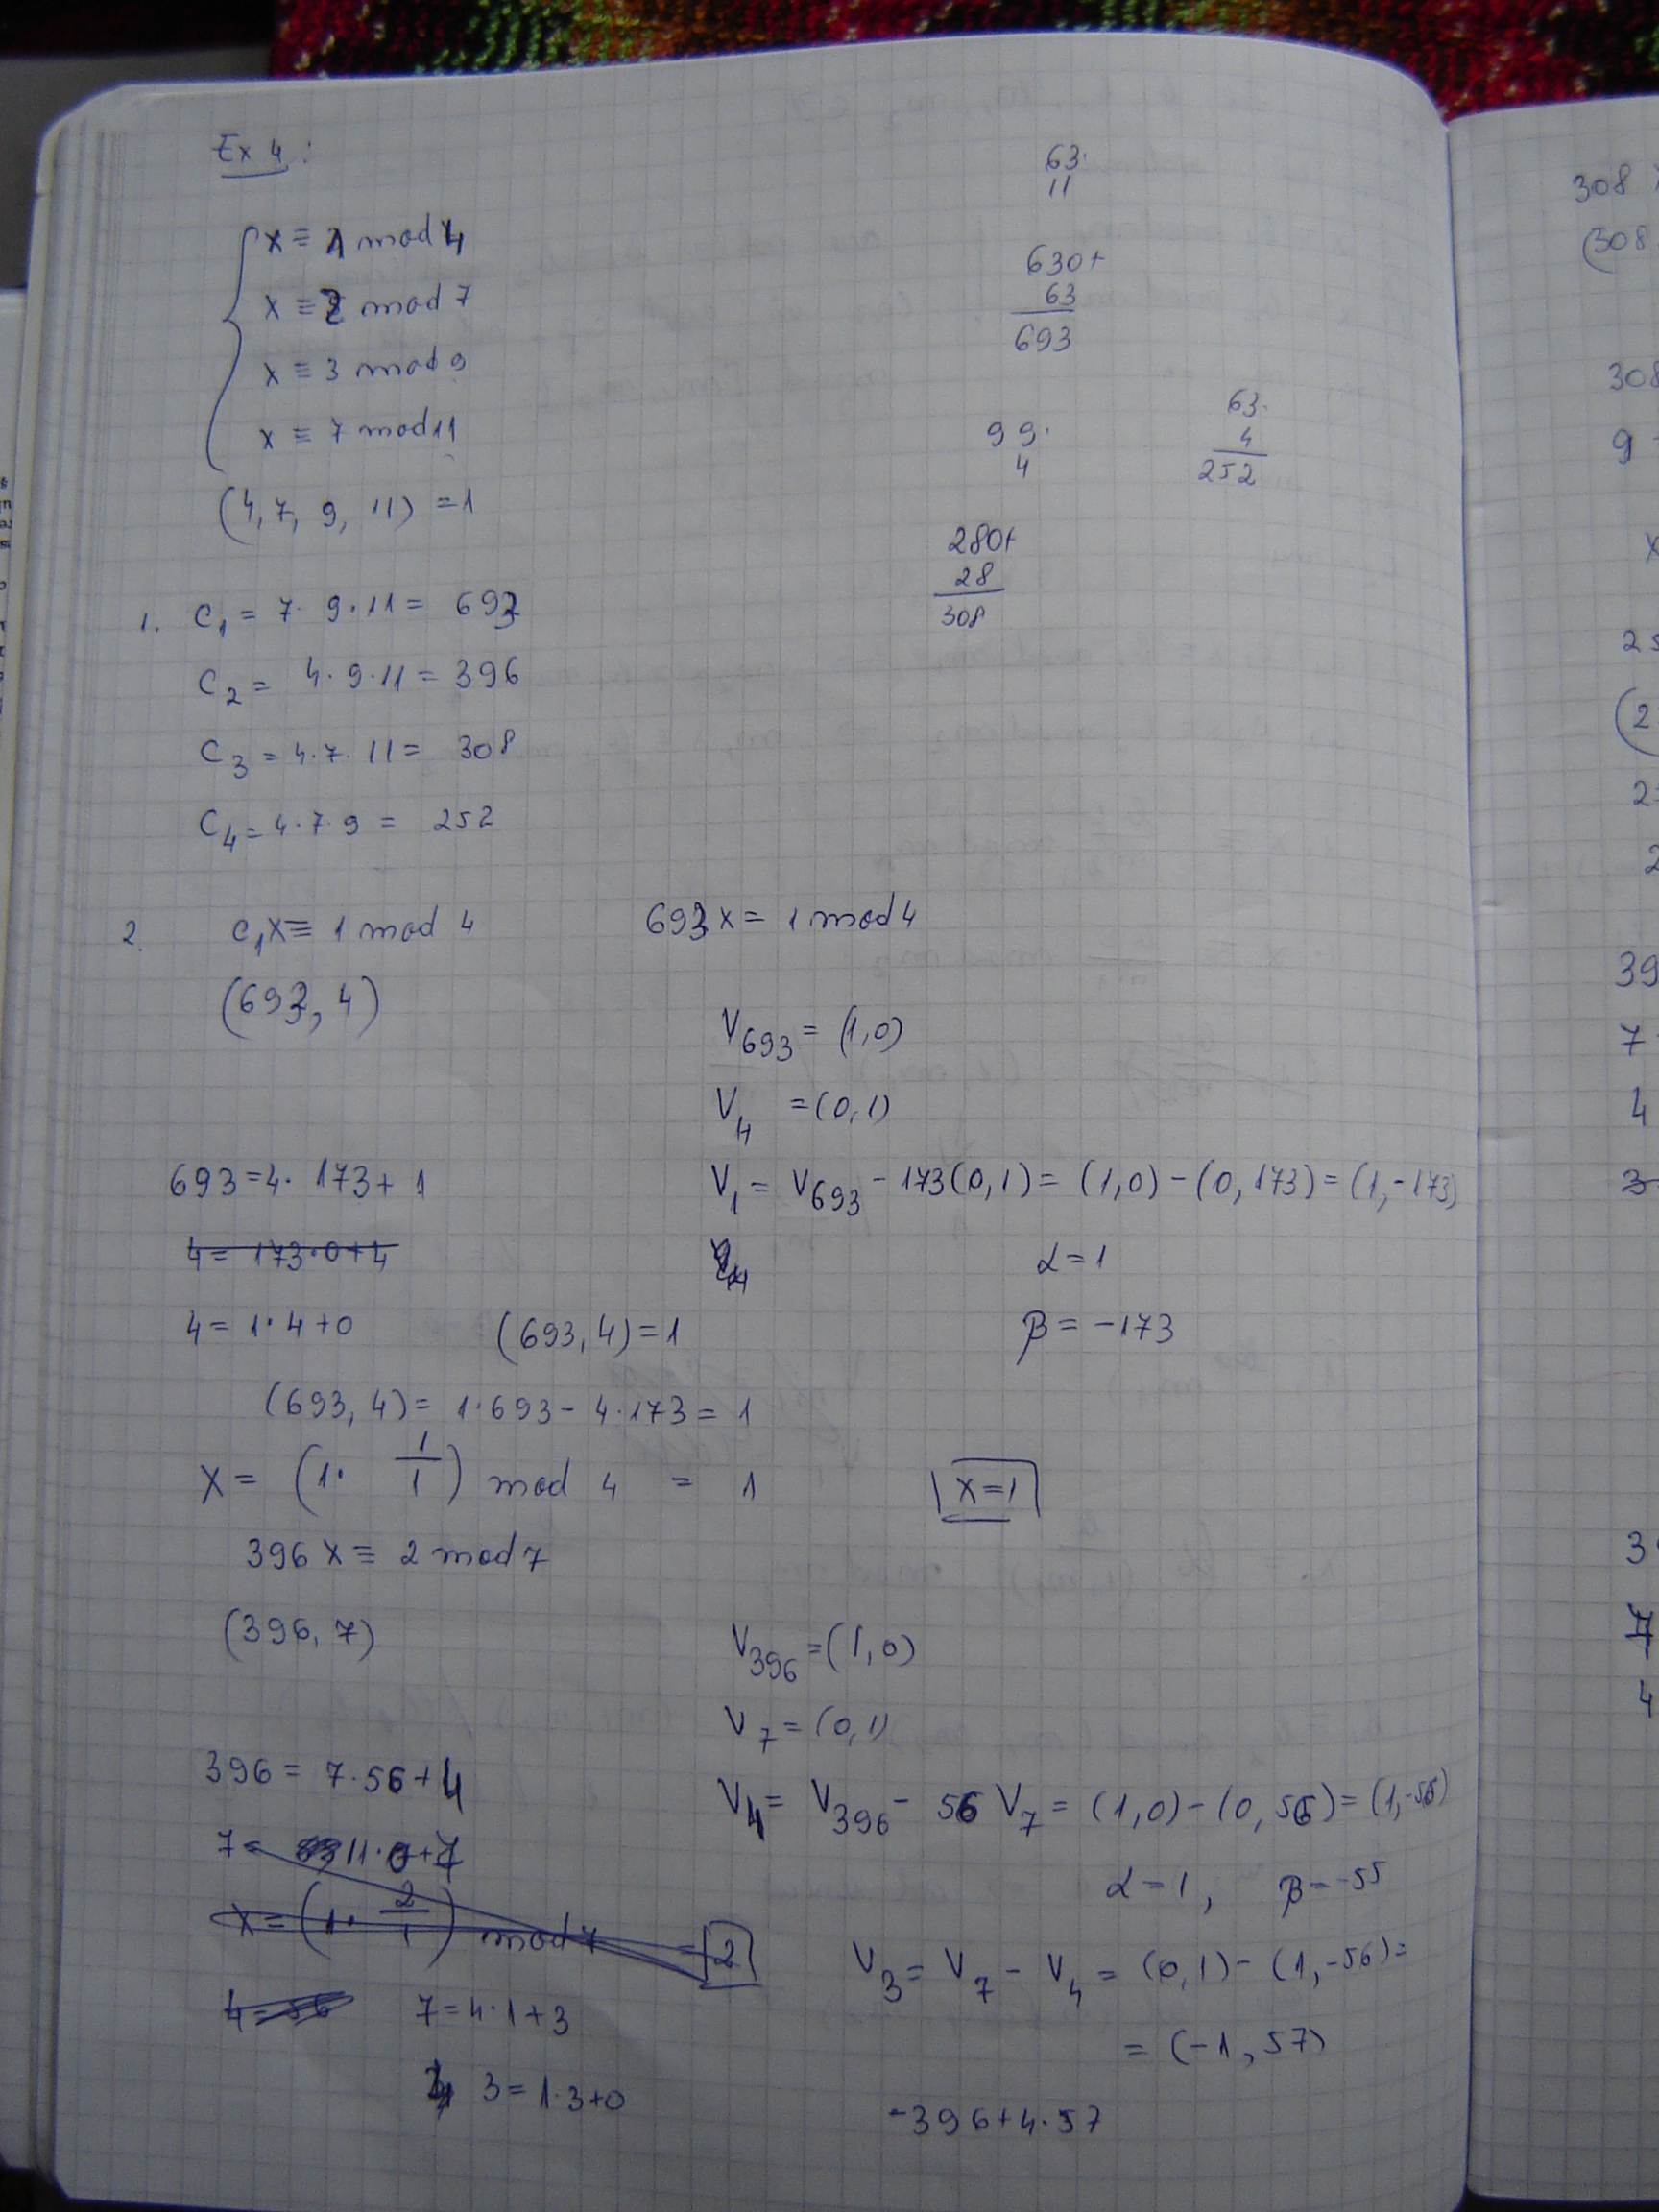 Ex 4:
x ≡ 1 mod 4
x ≡ 2 mod 7
x ≡ 3 mod 9
x ≡ 7 mod 11
(4, 7, 9, 11) = 1
63·
11
630+
63
693
99·
4
63·
4
252
280+
28
308
1. C₁ = 7·9·11 = 693
C₂ = 4·9·11 = 396
C₃ = 4·7·11 = 308
C₄ = 4·7·9 = 252
2. C₁x ≡ 1 mod 4
693x = 1 mod 4
(693, 4)
V₆₉₃ = (1,0)
V₄ = (0,1)
693 = 4·173 + 1
V₁ = V₆₉₃ - 173(0,1) = (1,0) - (0,173) = (1,-173)
4 = 173·0+4
α = 1
4 = 1·4+0
(693, 4) = 1
β = -173
(693, 4) = 1·693 - 4·173 = 1
X = (1· 1/1) mod 4 = 1
x=1
396 x ≡ 2 mod 7
(396, 7)
V₃₉₆ = (1,0)
V₇ = (0,1)
396 = 7·56+4
V₄ = V₃₉₆ - 56 V₇ = (1,0) - (0,56) = (1,-56)
7= 11·0+7
α = 1, β = -55
x = (1· 2/1) mod 7 = 2
V₃ = V₇ - V₄ = (0,1) - (1,-56) =
4=56
7 = 4·1+3
= (-1, 57)
3 = 1·3+0
-396+4·57
308
(308
308
9
x
25
(2
2
2
39
7
4
3
3
7
4